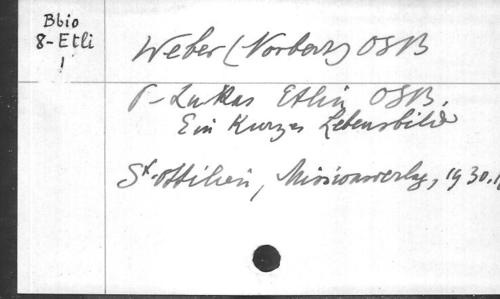 Bbio
8-Etli
1
Weber (Norbert) OSB
P. Lukas Etlin OSB.
Ein kurzes Lebensbild
St. Ottilien, Missionsverlag, 1930.